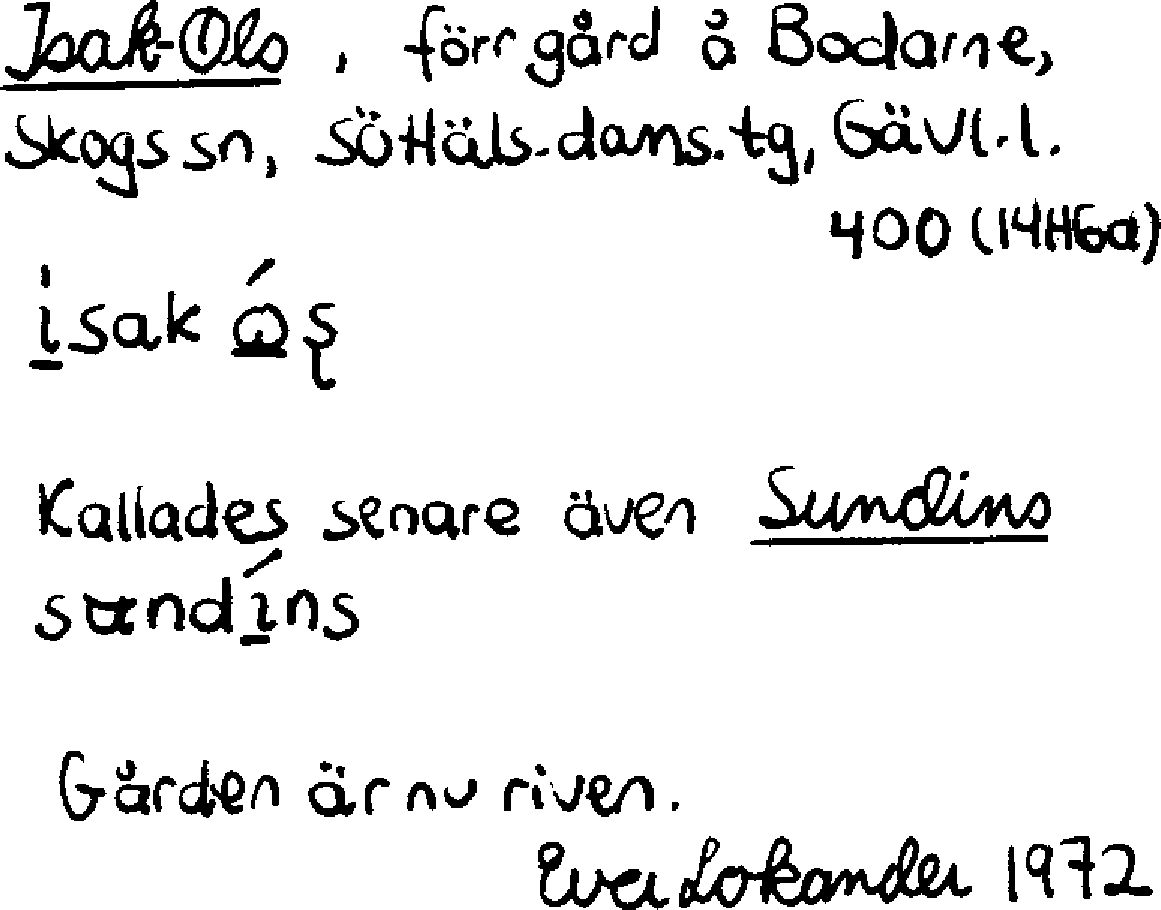 Isak-Ols, förr gård å Bodarne,
Skogs sn, Sö Häls. doms. tg, Gävl. l.
400 (14H6a)
isak
Kallades senare även Sundins
sundíns
Gården är nu riven.
Eva Lokander 1972